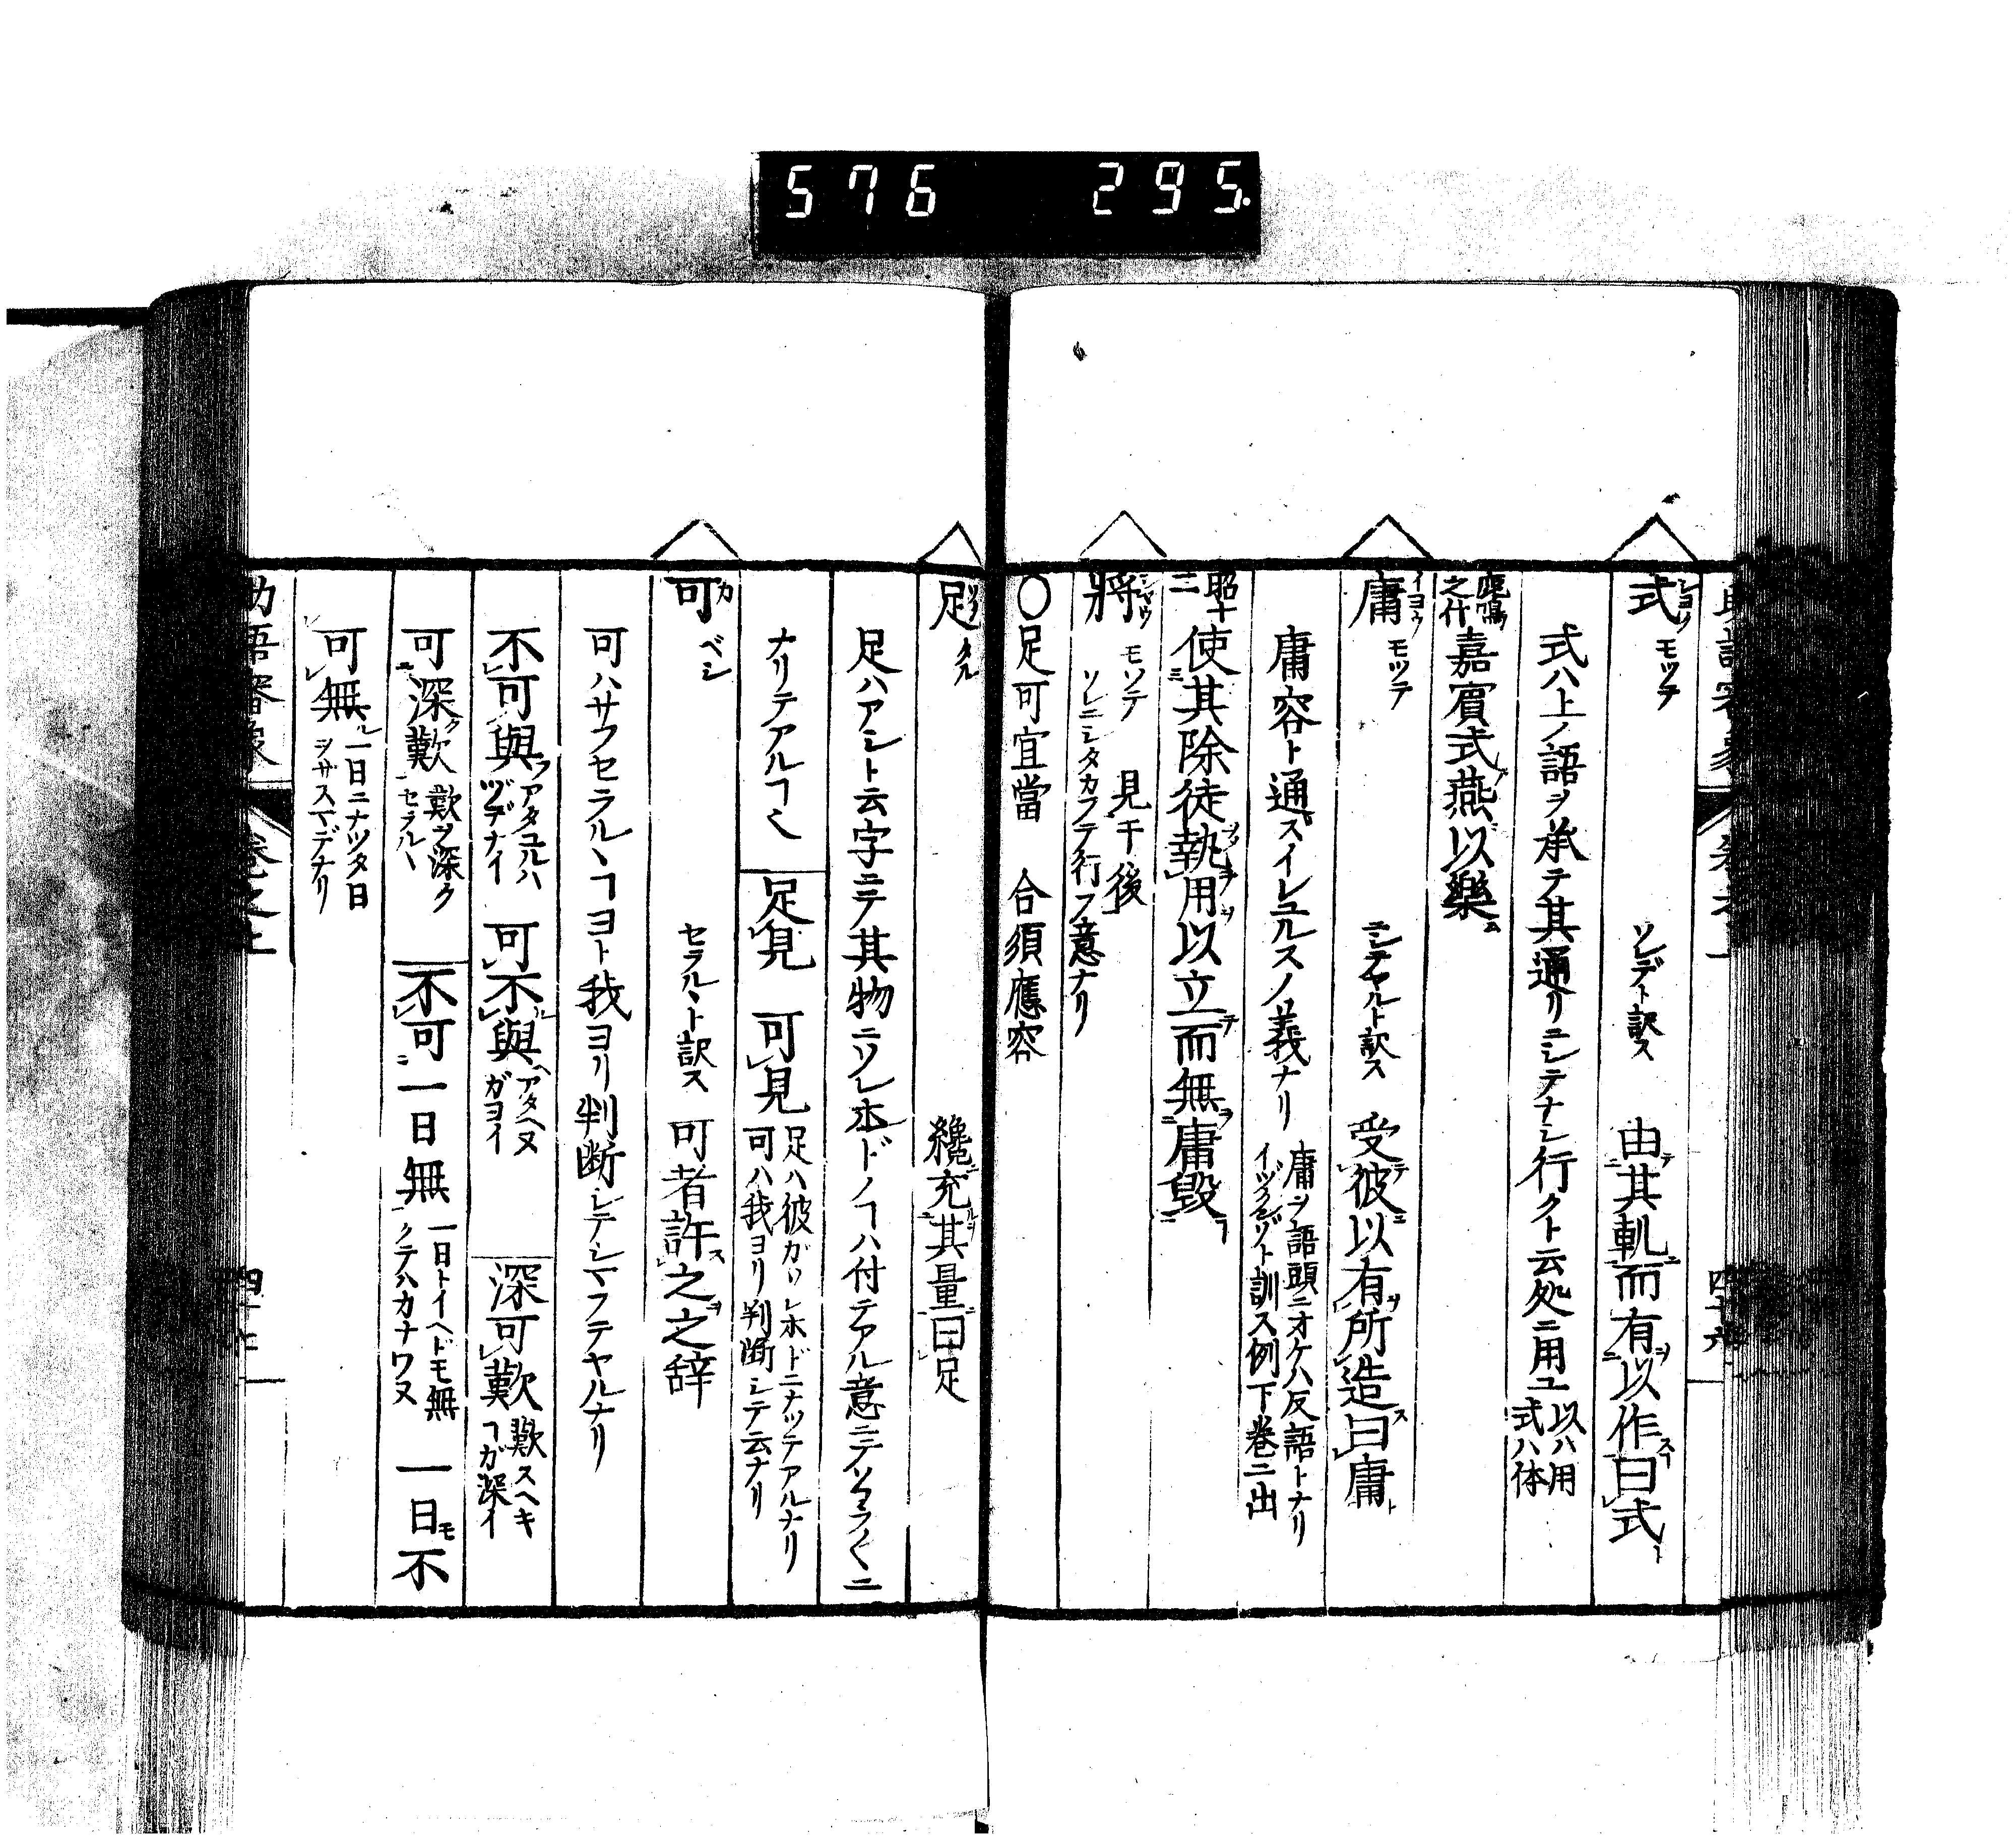 576 295.
式 ショク モツテ ソレデト訳ス 由其軌而有以作曰式
式ハ上ノ語ヲ承テ其通リニシテナシ行クト云処ニ用ユ 以ハ用 式ハ体
鹿鳴之什 嘉賓式燕以樂
庸 イヨウ モツテ ニシテヤルト訳ス 受彼以有所造曰庸
庸容ト通スイレユルスノ義ナリ 庸ヲ語頭ニオケハ反語トナリ イヅクンゾト訓ス例下巻ニ出
昭十二 使其除徒執用以立而無庸毀
將 シヤウ モツテ 見于後 ソレニシタカフテ行フ意ナリ
〇足可宜當 合須應容
足 ソク タル 纔充其量曰足
足ハアシト云字ニテ其物ニソレホドノヿハ付テアル意ニテソラ〱ニ
ナリテアルヿ〱 足見 可見 足ハ彼ガソレホドニナツテアルナリ 可ハ我ヨリ判断シテ云ナリ
可 カ ベシ セラルヽト訳ス 可者許之之辞
可ハサフセラルヽヿヨト我ヨリ判断シテシマフテヤルナリ
不可與 アタユルハヅデナイ 可不與 アタヘヌガヨイ 深可歎 歎スヘキヿガ深イ
可深歎 歎ヲ深クセラルヽ 不可一日無 一日トイヘドモ無クテハカナワヌ 一日モ不
可無 一日ニナツタ日ヲサスマデナリ